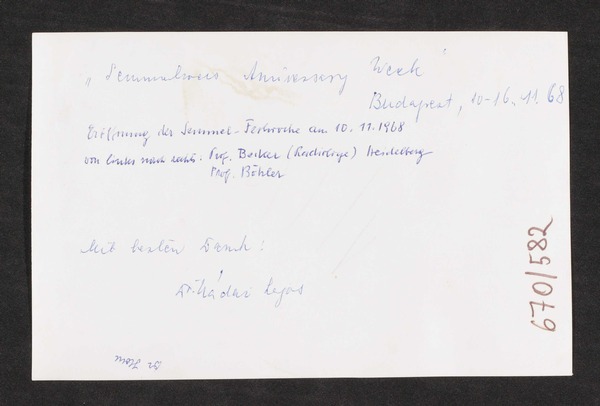 „Semmelweis Anniversary Week"
Budapest, 10-16. 11. 68
Eröffnung der Semmel-Festwoche am 10. 11. 1968
von links nach rechts: Prof. Becker (Radiologe) Heidelberg
Prof. Böhler
Mit besten Dank!
Dr. Kádár Lajos
670/582